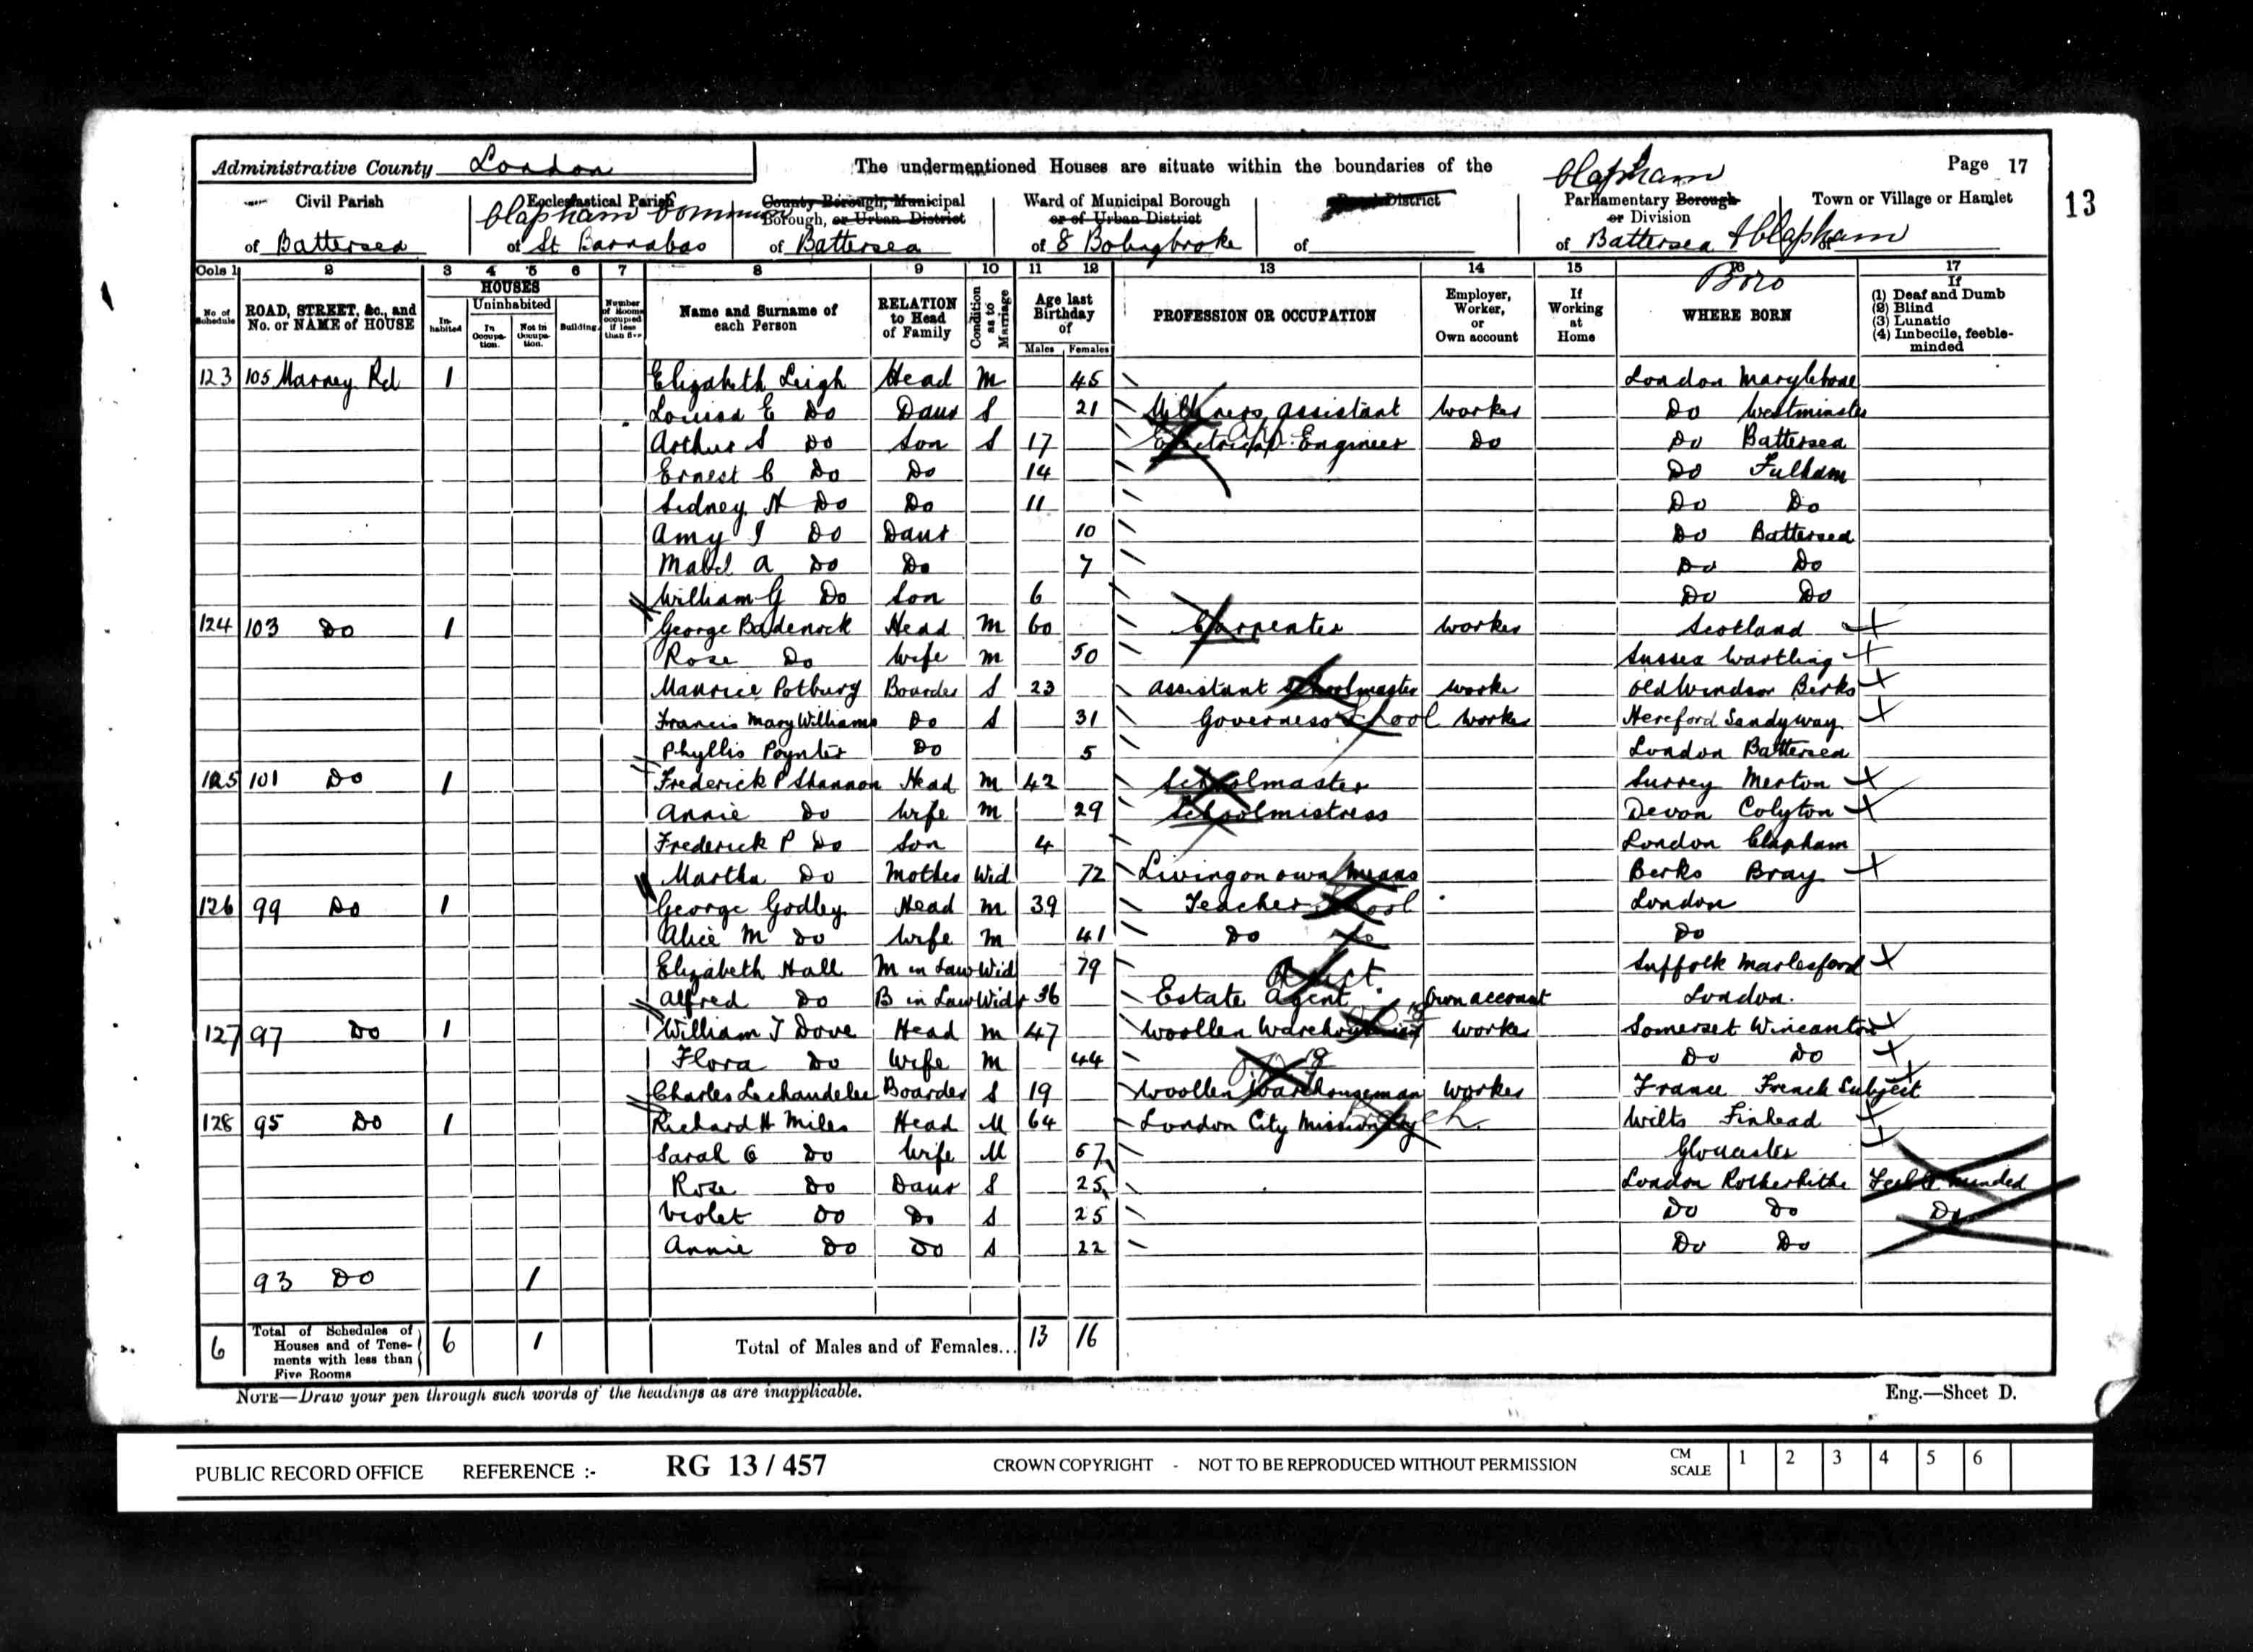 Administrative County London The undermentioned Houses are situate within the boundaries of the Page 17
13
Civil Parish of Battersea
Ecclesiastical Parish of Clapham Common St Barnabas
County Borough, Municipal Borough, or Urban District of Battersea
Ward of Municipal Borough or of Urban District of 8 Bolingbroke
Rural District of
Parliamentary Borough or Division of Battersea & Clapham Clapham Boro
Town or Village or Hamlet of
Cols 1 2 3 4 5 6 7 8 9 10 11 12 13 14 15 16 17
No. of Schedule
ROAD, STREET, &c., and No. or NAME of HOUSE
HOUSES
In-habited
Uninhabited
In Occupa-tion.
Not in Occupa-tion.
Building.
Number of Rooms occupied if less than five
Name and Surname of each Person
RELATION to Head of Family
Condition as to Marriage
Age last Birthday of
Males Females
PROFESSION OR OCCUPATION
Employer, Worker, or Own account
If Working at Home
WHERE BORN
If
(1) Deaf and Dumb
(2) Blind
(3) Lunatic
(4) Imbecile, feeble-minded
123 105 Marney Rd 1 Elizabeth Leigh Head M 45 London Marylebone
Louisa E Do Daur S 21 Milliners assistant Worker Do Westminster
Arthur S Do Son S 17 Electrical App. Engineer Do Do Battersea
Ernest C Do Do 14 Do Fulham
Sidney H Do Do 11 Do Do
Amy I Do Daur 10 Do Battersea
Mabel A Do Do 7 Do Do
William G Do Son 6 Do Do
124 103 Do 1 George Badenock Head M 60 Carpenter Worker Scotland
Rose Do Wife M 50 Sussex Wartling
Maurice Potbury Boarder S 23 Assistant Schoolmaster Worker Old Windsor Berks
Francis Mary Williams Do S 31 Governess School Worker Hereford Sandyway
Phyllis Poynter Do 5 London Battersea
125 101 Do 1 Frederick P Shannon Head M 42 Schoolmaster Surrey Merton
Annie Do Wife M 29 Schoolmistress Devon Colyton
Frederick P Do Son 4 London Clapham
Martha Do Mother Wid 72 Living on own means Berks Bray
126 99 Do 1 George Godley Head M 39 Teacher School London
Alice M Do Wife M 41 Do Do Do
Elizabeth Hall M in Law Wid 79 Suffolk Marlesford
Alfred Do B in Law Widr 36 Estate Agent. Auct. Own account London.
127 97 Do 1 William J Dove Head M 47 Woollen Warehouseman Worker Somerset Wincanton
Flora Do Wife M 44 Do Do
Charles Lechandelee Boarder S 19 Woollen Warehouseman Worker France French Subject
128 95 Do 1 Richard H Miles Head M 64 London City Missionary Wilts
Sarah Do Wife M 67 Gloucester
Rose Do Daur S 25 London Rotherhithe Feeble minded
Violet Do Do S 25 Do Do Do
Annie Do Do S 22 Do Do
93 Do 1
6 Total of Schedules of Houses and of Tene-ments with less than Five Rooms 6 1 Total of Males and of Females... 13 16
NOTE—Draw your pen through such words of the headings as are inapplicable.
Eng.—Sheet D.
PUBLIC RECORD OFFICE REFERENCE :- RG 13 / 457 CROWN COPYRIGHT - NOT TO BE REPRODUCED WITHOUT PERMISSION CM SCALE 1 2 3 4 5 6